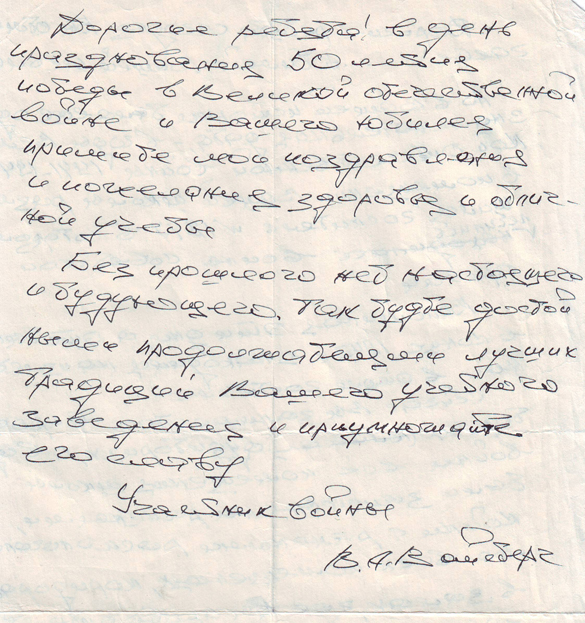 Дорогие ребята! в день
празднования 50 летия
победы в Великой отечественной
войне и Вашего юбилея
примите мои поздравления
и пожелания здоровья и отлич-
ной учебы
Без прошлого нет настоящего
и будующего. Так будте достой
ными продолжателями лучших
традиций Вашего учебного
заведения и приумножайте
его славу
Участник войны
В.А. Вайсберг